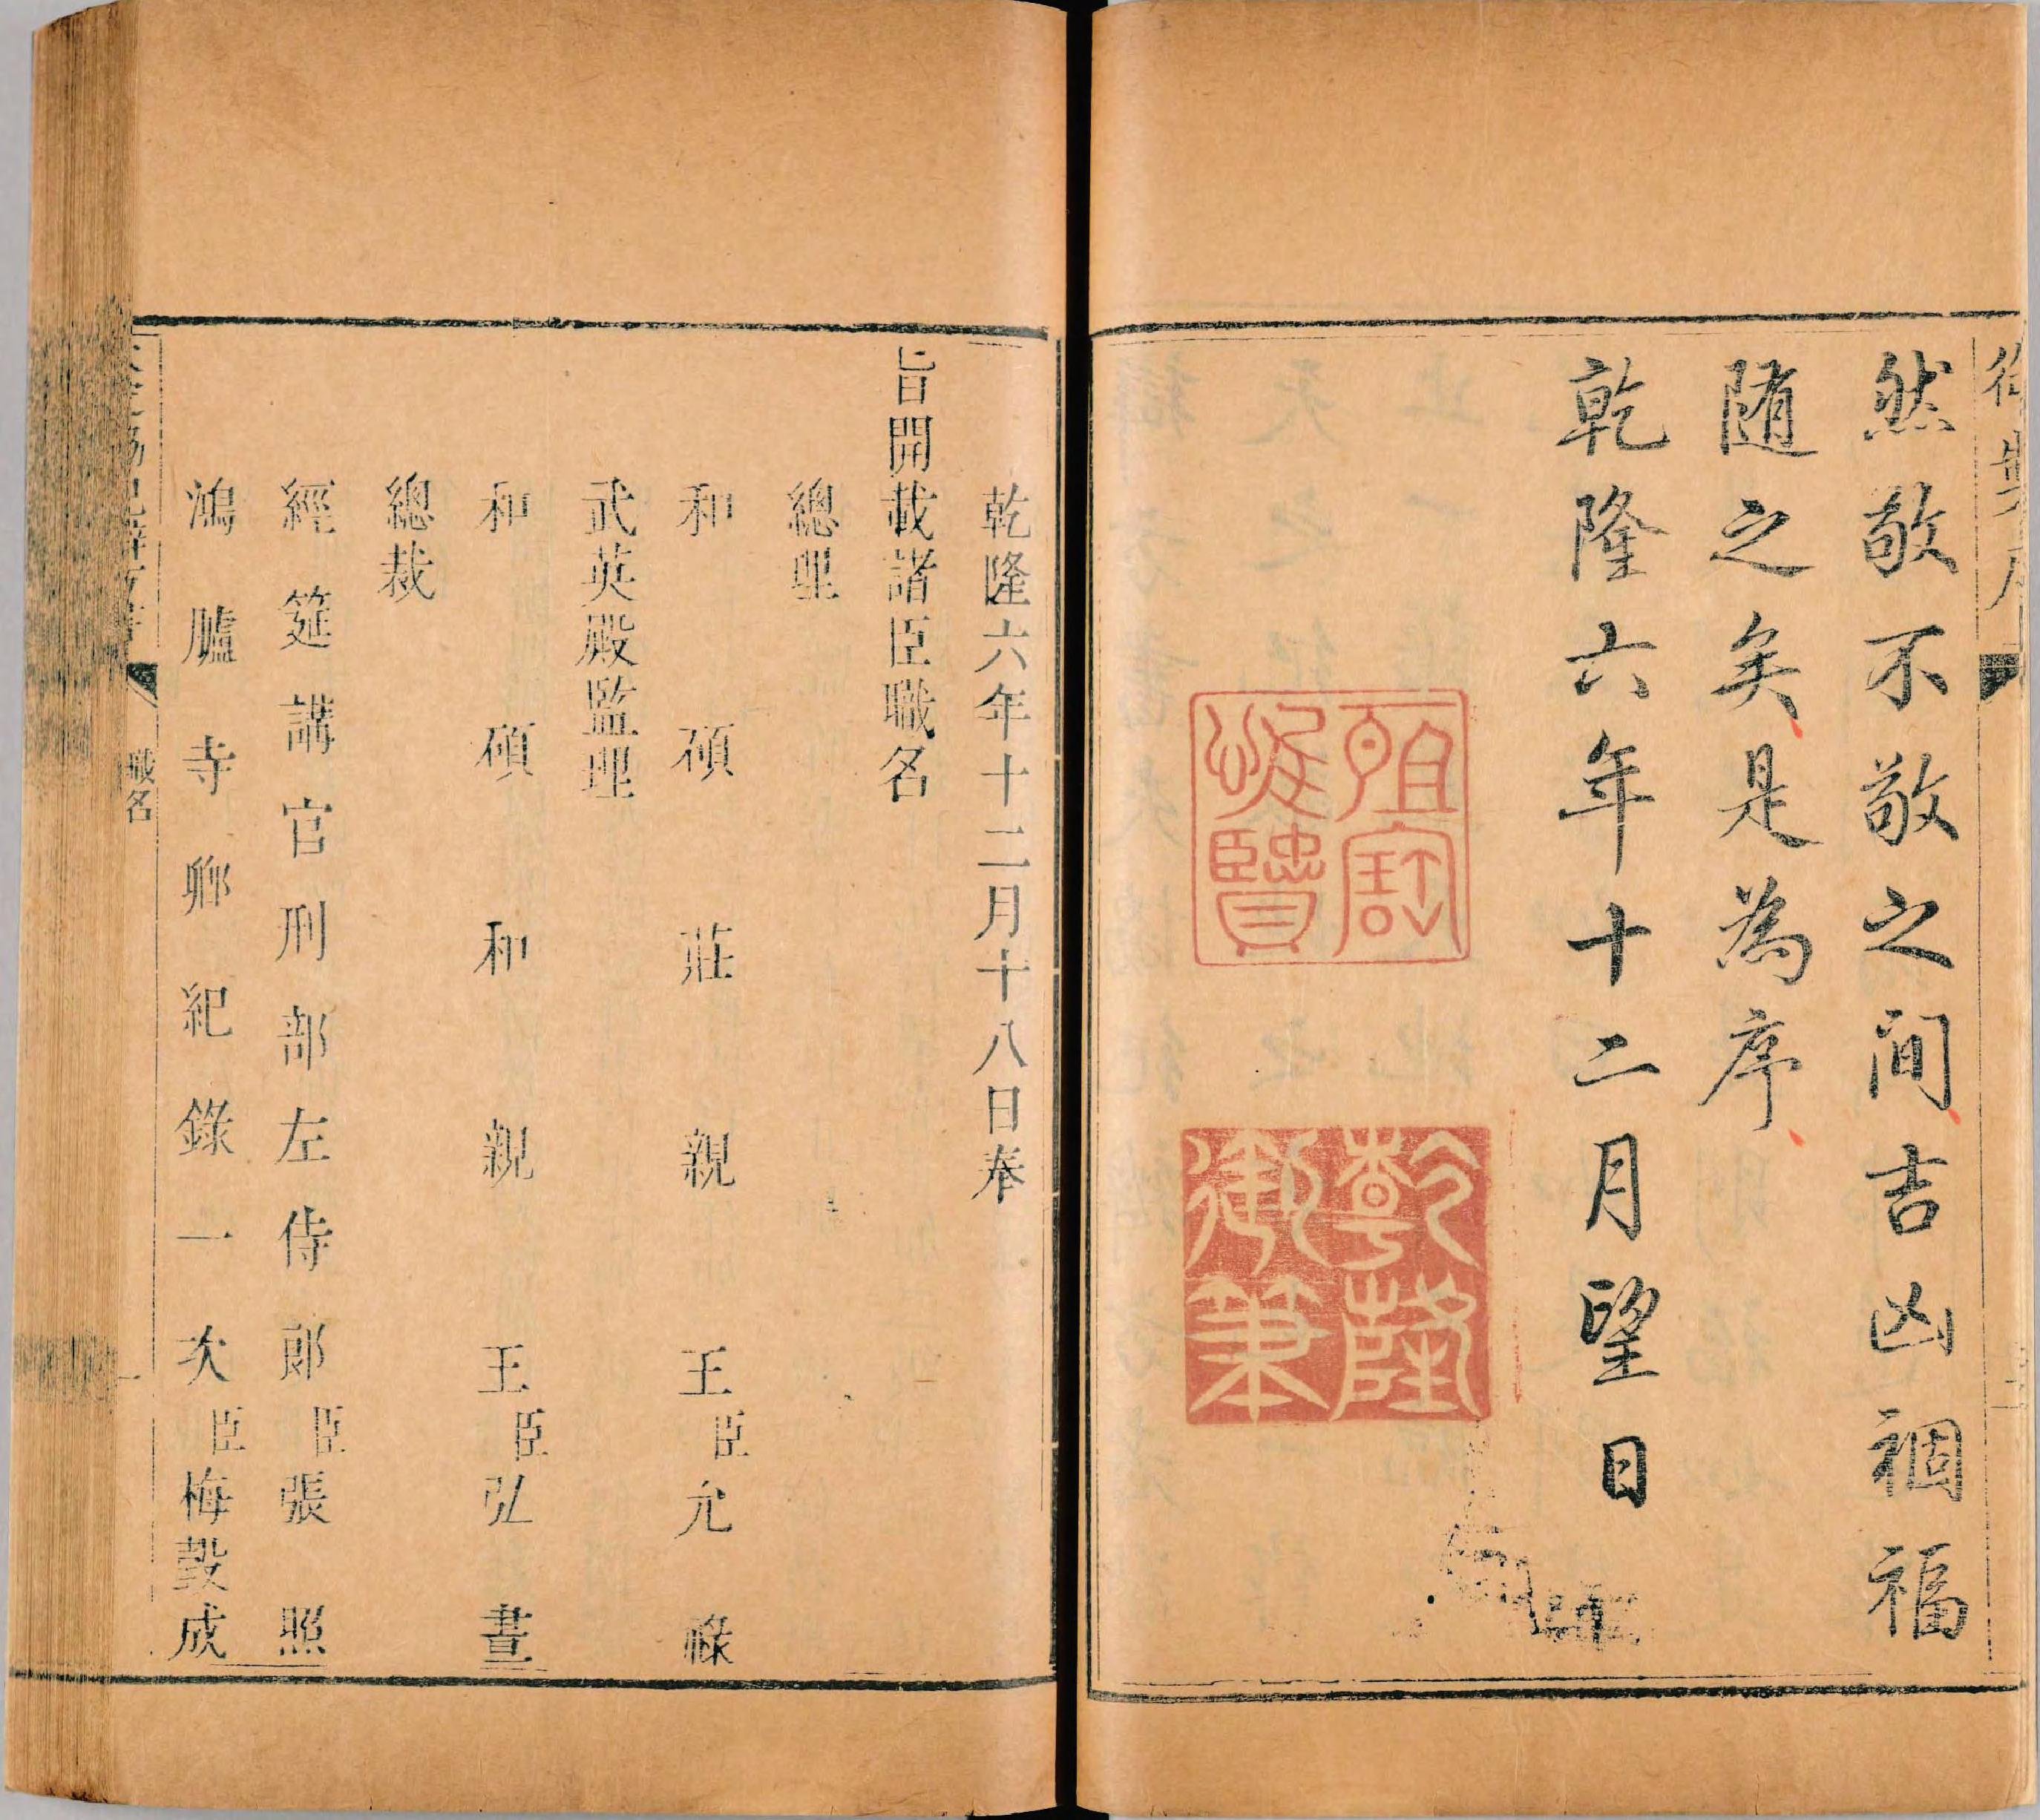 御製序
然敬不敬之間吉凶禍福
隨之矣是為序
乾隆六年十二月望日
乾隆御筆
乾隆六年十二月十八日奉
旨開載諸臣職名
總理
和碩莊親王臣允祿
武英殿監理
和碩和親王臣弘晝
總裁
經筵講官刑部左侍郎臣張照
鴻臚寺卿紀錄一次臣梅瑴成
職名
一